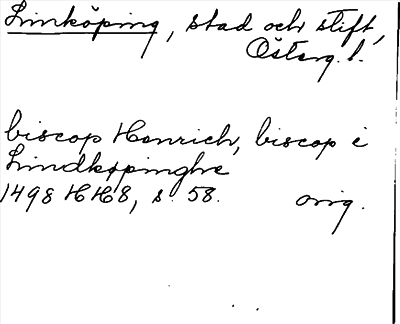 Linköping, stad och stift,
Österg. l.
biscop Henrich, biscop i
Lindköpinghe
1498 HH8, s. 58. orig.